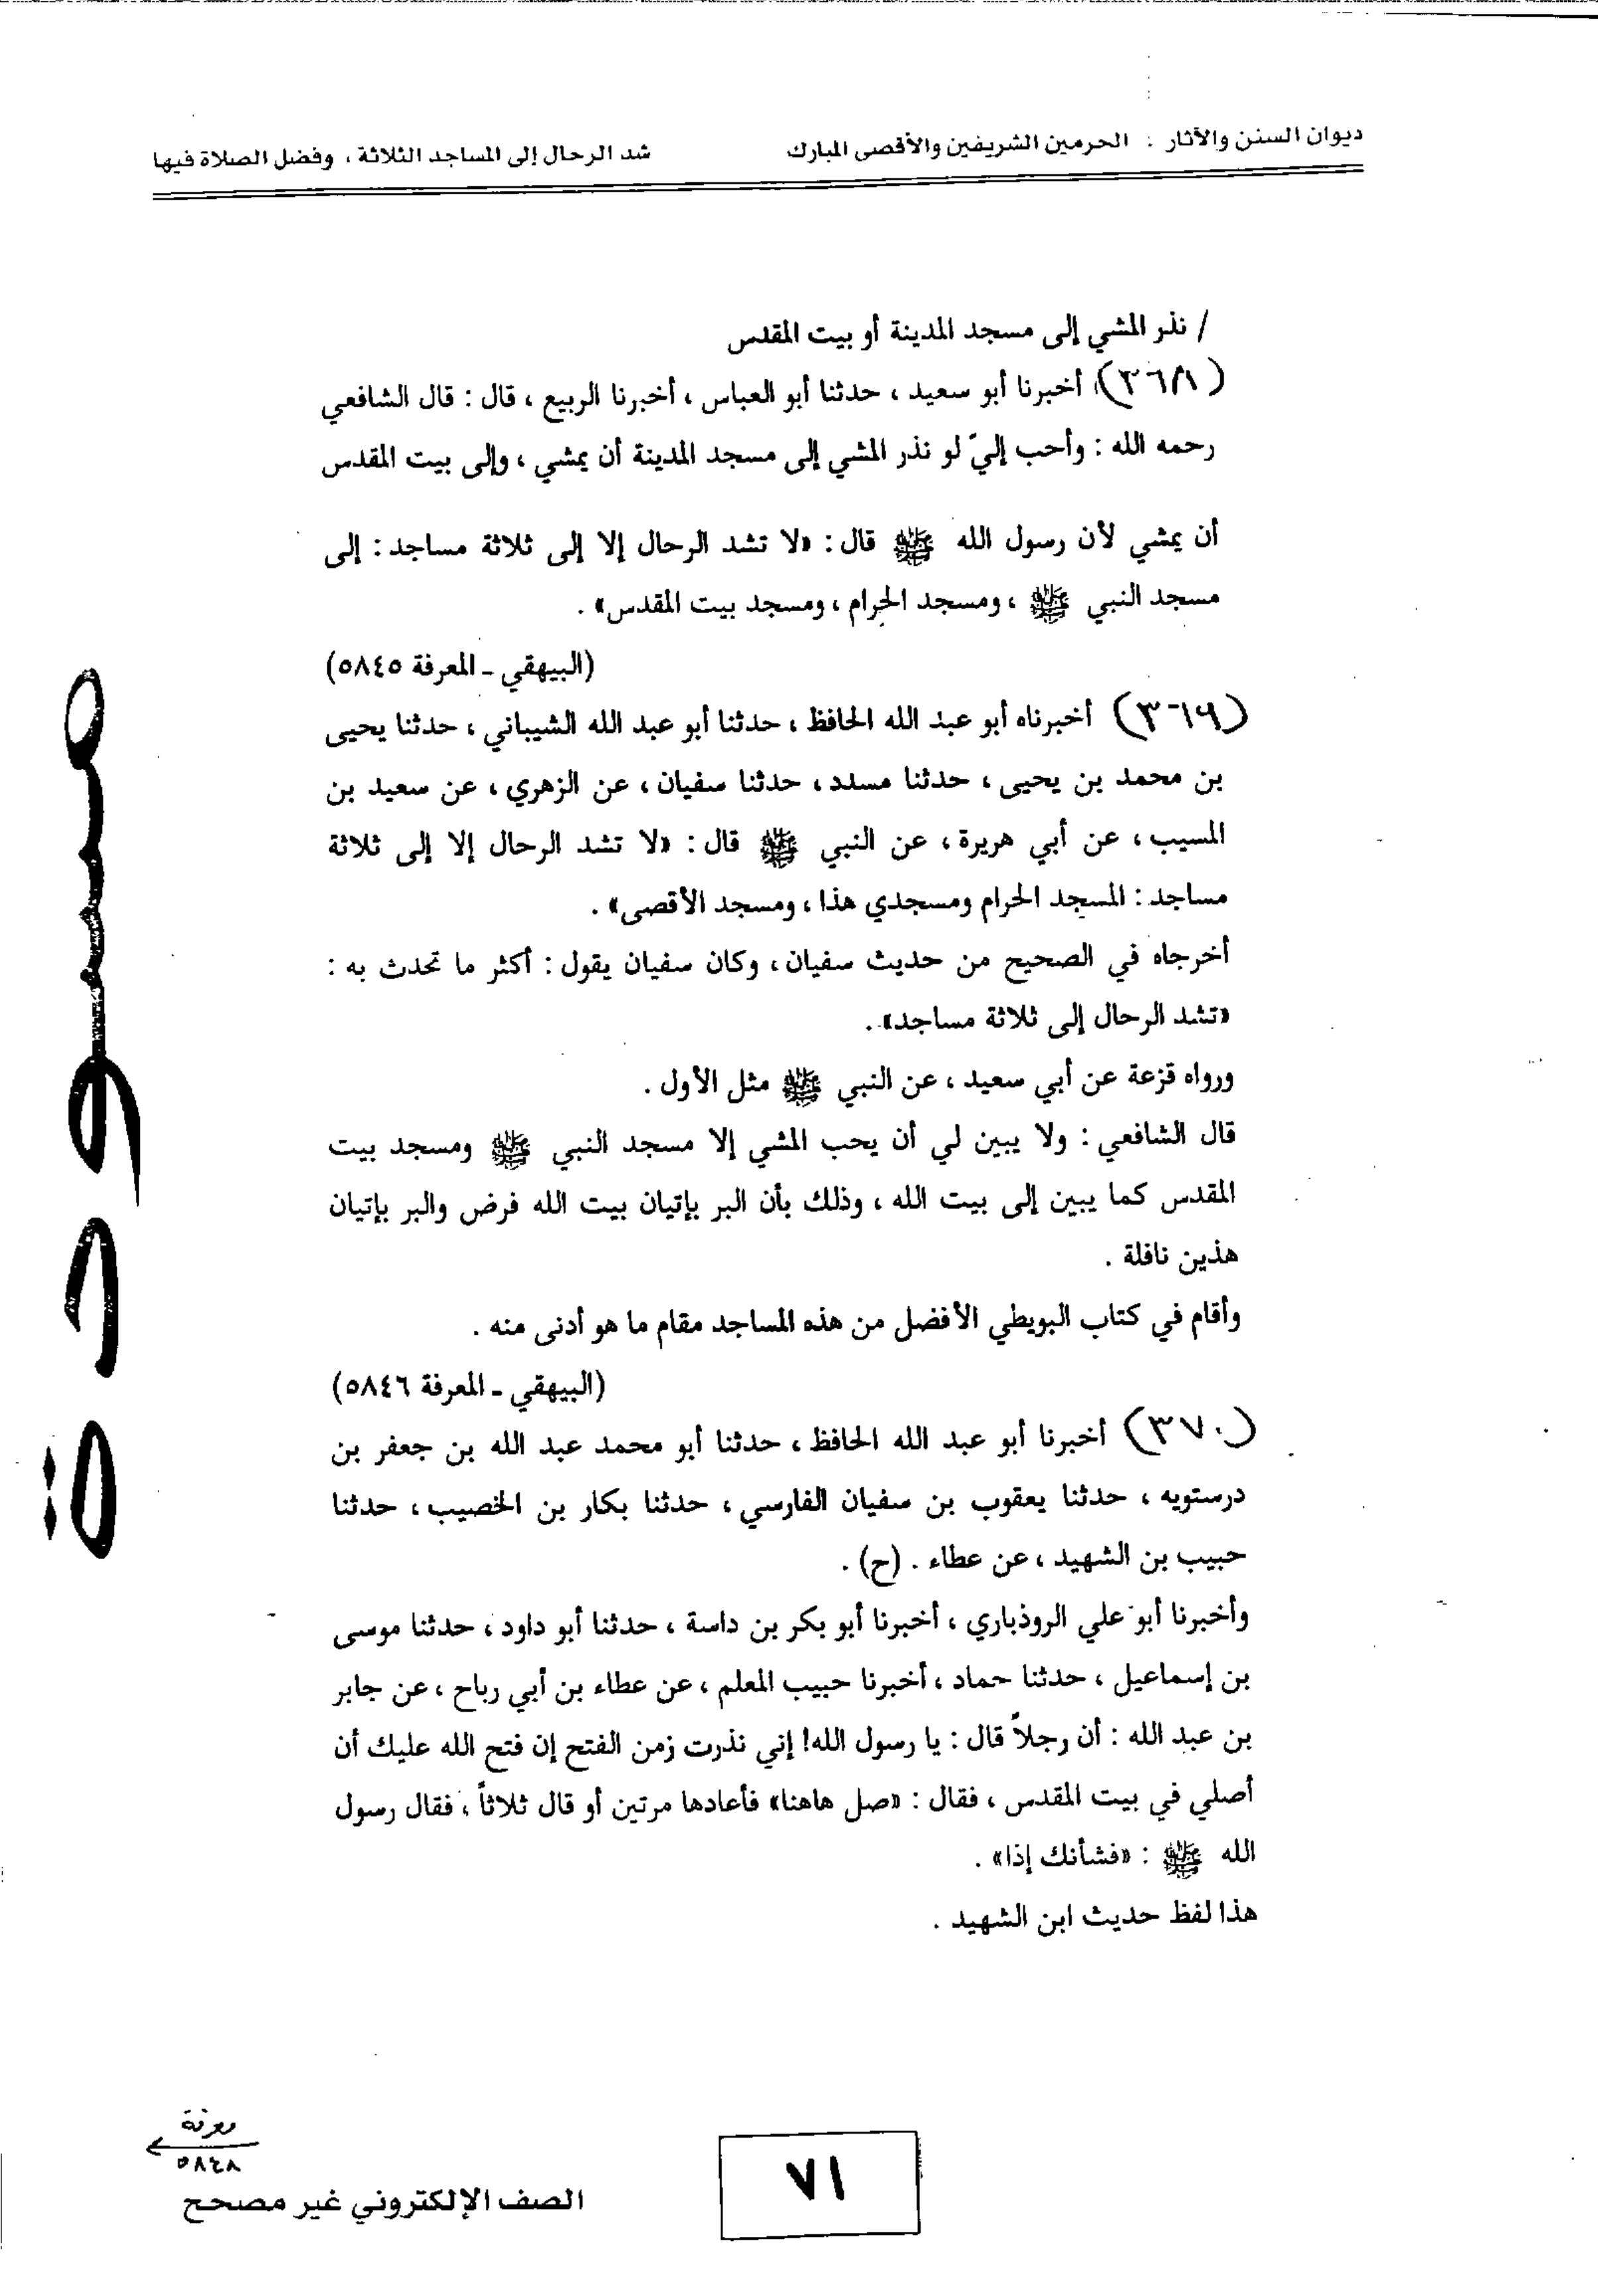 ديوان السنن والآثار : الحرمين الشريفين والأقصى المبارك
شد الرحال إلى المساجد الثلاثة ، وفضل الصلاة فيها
/ نذر المشي إلى مسجد المدينة أو بيت المقدس
(٣٦٨) أخبرنا أبو سعيد ، حدثنا أبو العباس ، أخبرنا الربيع ، قال : قال الشافعي
رحمه الله : وأحب إليّ لو نذر المشي إلى مسجد المدينة أن يمشي ، وإلى بيت المقدس
أن يمشي لأن رسول الله ﷺ قال : «لا تشد الرحال إلا إلى ثلاثة مساجد : إلى
مسجد النبي ﷺ ، ومسجد الحرام ، ومسجد بيت المقدس» .
(البيهقي ـ المعرفة ٥٨٤٥)
(٣٦٩) أخبرناه أبو عبد الله الحافظ ، حدثنا أبو عبد الله الشيباني ، حدثنا يحيى
بن محمد بن يحيى ، حدثنا مسدد ، حدثنا سفيان ، عن الزهري ، عن سعيد بن
المسيب ، عن أبي هريرة ، عن النبي ﷺ قال : «لا تشد الرحال إلا إلى ثلاثة
مساجد : المسجد الحرام ومسجدي هذا ، ومسجد الأقصى» .
أخرجاه في الصحيح من حديث سفيان ، وكان سفيان يقول : أكثر ما تحدث به :
«تشد الرحال إلى ثلاثة مساجد» .
ورواه قزعة عن أبي سعيد ، عن النبي ﷺ مثل الأول .
قال الشافعي : ولا يبين لي أن يحب المشي إلا مسجد النبي ﷺ ومسجد بيت
المقدس كما يبين إلى بيت الله ، وذلك بأن البر بإتيان بيت الله فرض والبر بإتيان
هذين نافلة .
وأقام في كتاب البويطي الأفضل من هذه المساجد مقام ما هو أدنى منه .
(البيهقي ـ المعرفة ٥٨٤٦)
(٣٧٠) أخبرنا أبو عبد الله الحافظ ، حدثنا أبو محمد عبد الله بن جعفر بن
درستويه ، حدثنا يعقوب بن سفيان الفارسي ، حدثنا بكار بن الخصيب ، حدثنا
حبيب بن الشهيد ، عن عطاء . (ح) .
وأخبرنا أبو علي الروذباري ، أخبرنا أبو بكر بن داسة ، حدثنا أبو داود ، حدثنا موسى
بن إسماعيل ، حدثنا حماد ، أخبرنا حبيب المعلم ، عن عطاء بن أبي رباح ، عن جابر
بن عبد الله : أن رجلاً قال : يا رسول الله! إني نذرت زمن الفتح إن فتح الله عليك أن
أصلي في بيت المقدس ، فقال : «صل هاهنا» فأعادها مرتين أو قال ثلاثاً ، فقال رسول
الله ﷺ : «فشأنك إذا» .
هذا لفظ حديث ابن الشهيد .
مسودة
معرفة
٥٨٤٨
٧١
الصف الإلكتروني غير مصحح